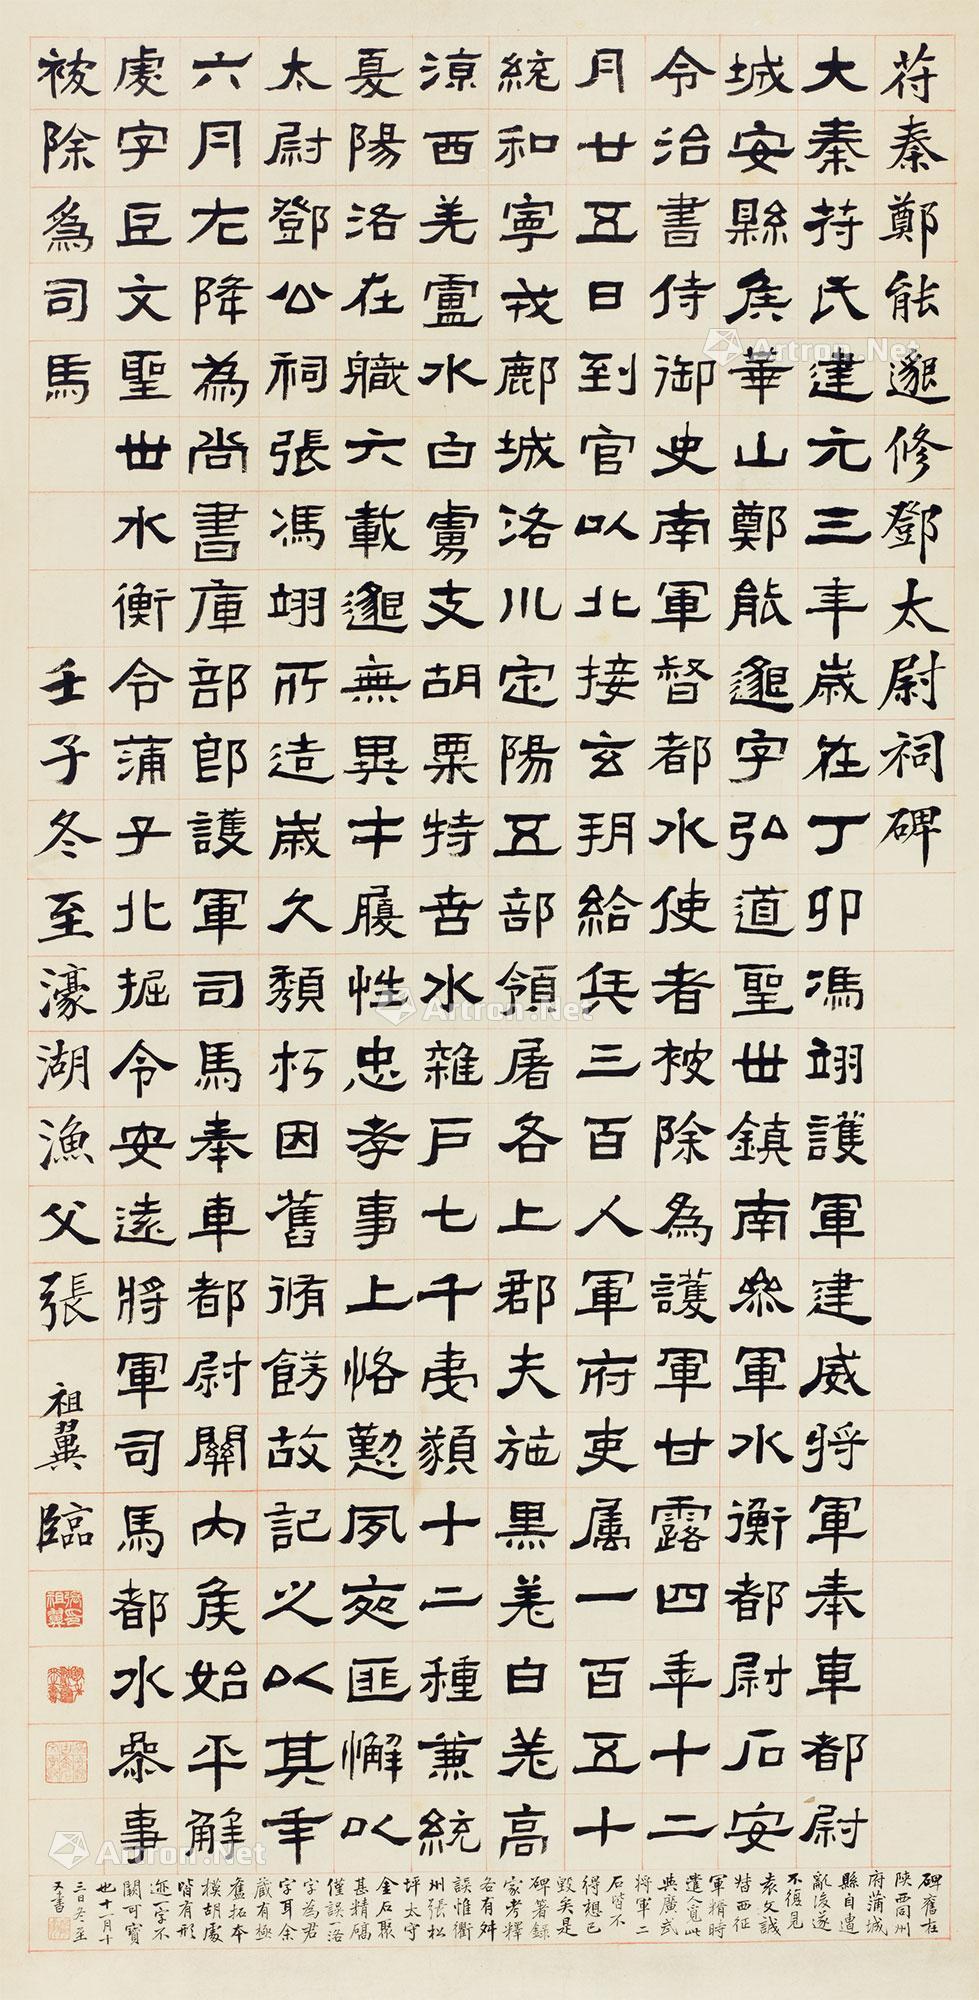 苻秦鄭能邈修鄧太尉祠碑
大秦苻氏建元三年歲在丁卯馮翊護軍建威將軍奉車都尉
城安縣矦華山鄭能邈字弘道聖世鎮南參軍水衡都尉石安
令治書侍御史南軍督都水使者被除為護軍甘露四年十二
月廿五日到官以北接玄朔給兵三百人軍府吏屬一百五十
統和寧戎鄜城洛川定陽五部領屠各上郡夫施黑羌白羌高
涼西羌盧水白虜支胡粟特苦水雜戶七千夷類十二種兼統
夏陽洛在職六載邈無異才履性忠孝事上恪懃夙夜匪懈以
太尉鄧公祠張馮翊所造歲久頹朽因舊脩餝故記之以其年
六月左降為尚書庫部郎護軍司馬奉車都尉關內矦始平解
虔字臣文聖世水衡令蒲子北掘令安遠將軍司馬都水參事
被除為司馬
壬子冬至濠湖漁父張祖翼臨
碑舊在
陝西同州
府蒲城
縣自遭
亂後遂
不復見
袁文誠
督西征
軍糈時
遣人覓此
與廣武
將軍二
石皆不
得想已
毀矣是
碑著錄
家考釋
各有舛
誤惟衢
州張松
坪太守
金石聚
甚精碻
僅誤一洛
字為君
字耳余
藏有極
舊拓本
模胡處
皆有形
迹一字不
闕可寶
也十一月十
三日冬至
又書
Artron.Net
Artron.Net
Artron.Net
Artron.Net